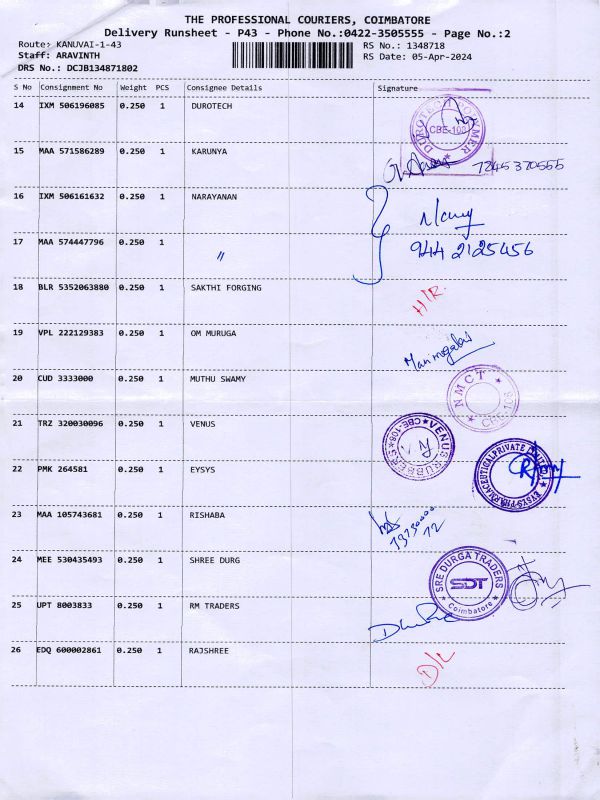 THE PROFESSIONAL COURIERS, COIMBATORE
Delivery Runsheet - P43 - Phone No.:0422-3505555 - Page No.:2
Route: KANUVAI-1-43
RS No.: 1348718
Staff: ARAVINTH
RS Date: 05-Apr-2024
DRS No.: DCJB134871802
S No Consignment No Weight PCS Consignee Details Signature
14 IXM 506196085 0.250 1 DUROTECH
CBE-108
15 MAA 571586289 0.250 1 KARUNYA
7245370555
16 IXM 506161632 0.250 1 NARAYANAN
17 MAA 574447796 0.250 1 〃
944 2125456
18 BLR 5352063880 0.250 1 SAKTHI FORGING
19 VPL 222129383 0.250 1 OM MURUGA
Manimegalai
20 CUD 3333000 0.250 1 MUTHU SWAMY
NMCT
21 TRZ 320030096 0.250 1 VENUS
VENUS RUBBERS CBE-108
22 PMK 264581 0.250 1 EYSYS
23 MAA 105743681 0.250 1 RISHABA
24 MEE 530435493 0.250 1 SHREE DURG
SRE DURGA TRADERS
SDT
Coimbatore
25 UPT 8003833 0.250 1 RM TRADERS
26 EDQ 600002861 0.250 1 RAJSHREE
D/L